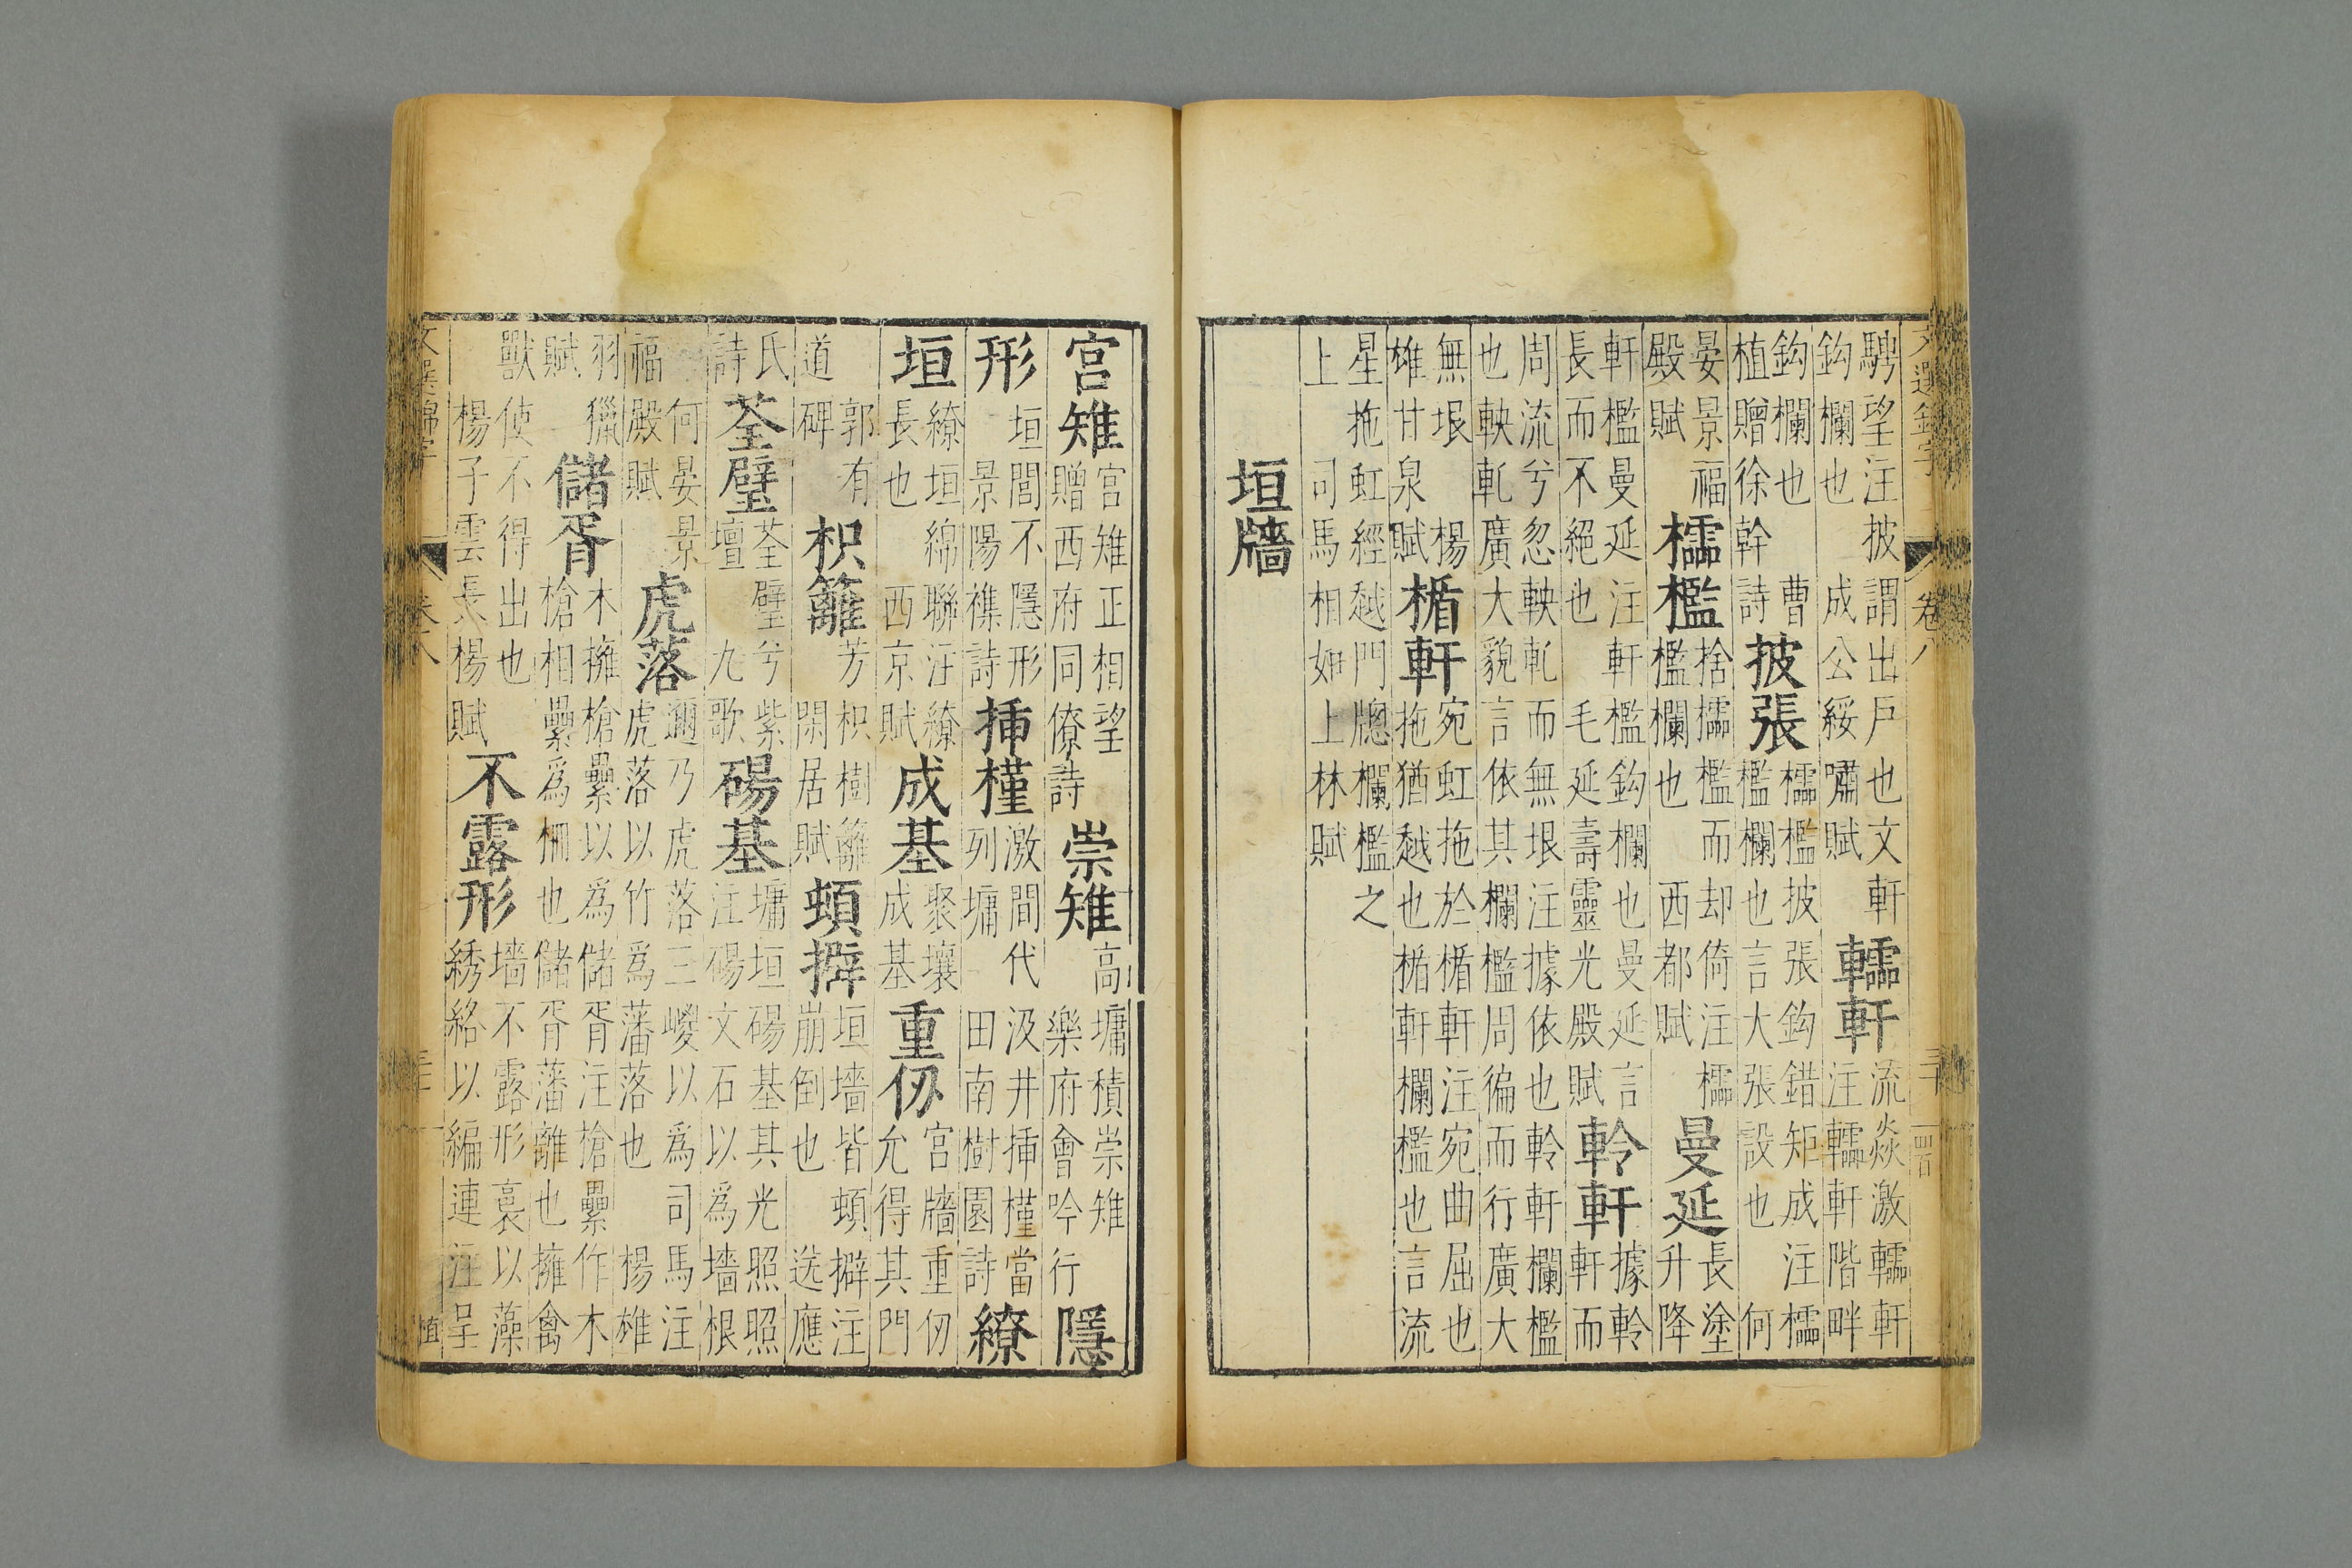 騁望注披謂出戶也文軒
鈎欄也 成公綏嘯賦
轜軒
流焱激轜軒
注轜軒階畔
鈎欄也 曹
植贈徐幹詩
披張
櫺檻披張鈎錯矩成注櫺
檻欄也言大張設也 何
晏景福
殿賦
櫺檻
捨櫺檻而却倚注櫺
檻欄也 西都賦
曼延
長塗
升降
軒檻曼延注軒檻鈎欄也曼延言
長而不絕也 毛延壽靈光殿賦
軨軒
據軨
軒而
周流兮忽軮軋而無垠注據依也軨軒欄檻
也軮軋廣大貌言依其欄檻周徧而行廣大
無垠 楊
雄甘泉賦
楯軒
宛虹拖於楯軒注宛曲屈也
拖猶越也楯軒欄檻也言流
星拖虹經越門牕欄檻之
上 司馬相如上林賦
垣牆
卷八
宫雉
宮雉正相望
贈西府同僚詩
崇雉
高墉積崇雉
樂府會吟行
隱
形
垣閭不隱形
景陽襍詩
挿槿
激間代汲井挿槿當
列墉 田南樹園詩
繚
垣
繚垣綿聯注繚
長也 西京賦
成基
聚壤
成基
重仞
宮牆重仞
允得其門
郭有
道碑
枳籬
芳枳樹籬
閑居賦
頓擗
垣墻皆頓擗注
崩倒也 选應
氏
詩
荃壁
荃壁兮紫
壇 九歌
碭基
墉垣碭基其光照照
注碭文石以為墻根
何晏景
福殿賦
虎落
邇乃虎落三嵏以為司馬注
虎落以竹爲藩落也 楊雄
羽獵
賦
儲胥
木擁槍纍以為儲胥注槍纍作木
槍相纍爲柵也儲胥藩離也擁禽
獸使不得出也
楊子雲長楊賦
不露形
墻不露形裛以藻
綉絡以編連注呈